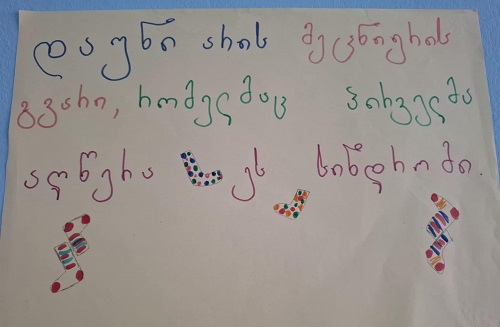 დაუნი არის მეცნიერის
გვარი, რომელმაც პირველმა
აღწერა ეს სინდრომი.